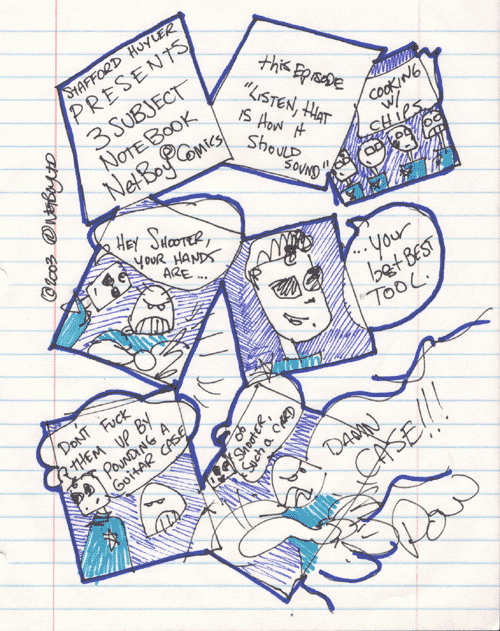 STAFFORD HUYLER
PRESENTS
3 SUBJECT
NOTEBOOK
NetBoy@Comics
this EPISODE
"LISTEN, tHAT
IS HOW it
SHOULD
SOUND"
COOKING
W/
CHIPS
©2003 @NetBoyLTD
HEY SHOOTER,
YOUR HANDS
ARE...
...YOUR
bEST
TOOL.
DON'T FUCK
tHEM UP BY
POUNDING A
GUITAR CASE
SHOOTER,
SUCH A
DAMN
CASE!!!
POW